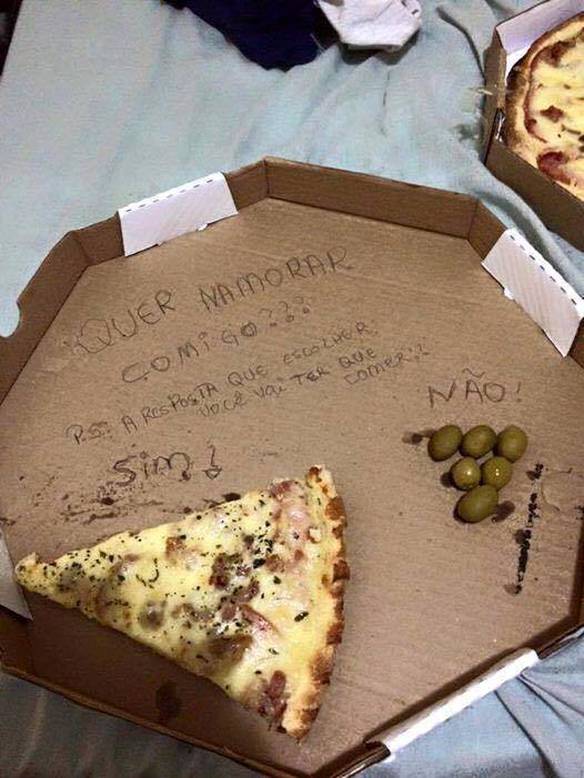 QUER NAMORAR
COMIGO???
P.S: A RESPOSTA QUE ESCOLHER
VOCÊ VAI TER QUE
COMER!!
NÃO!
SIM!